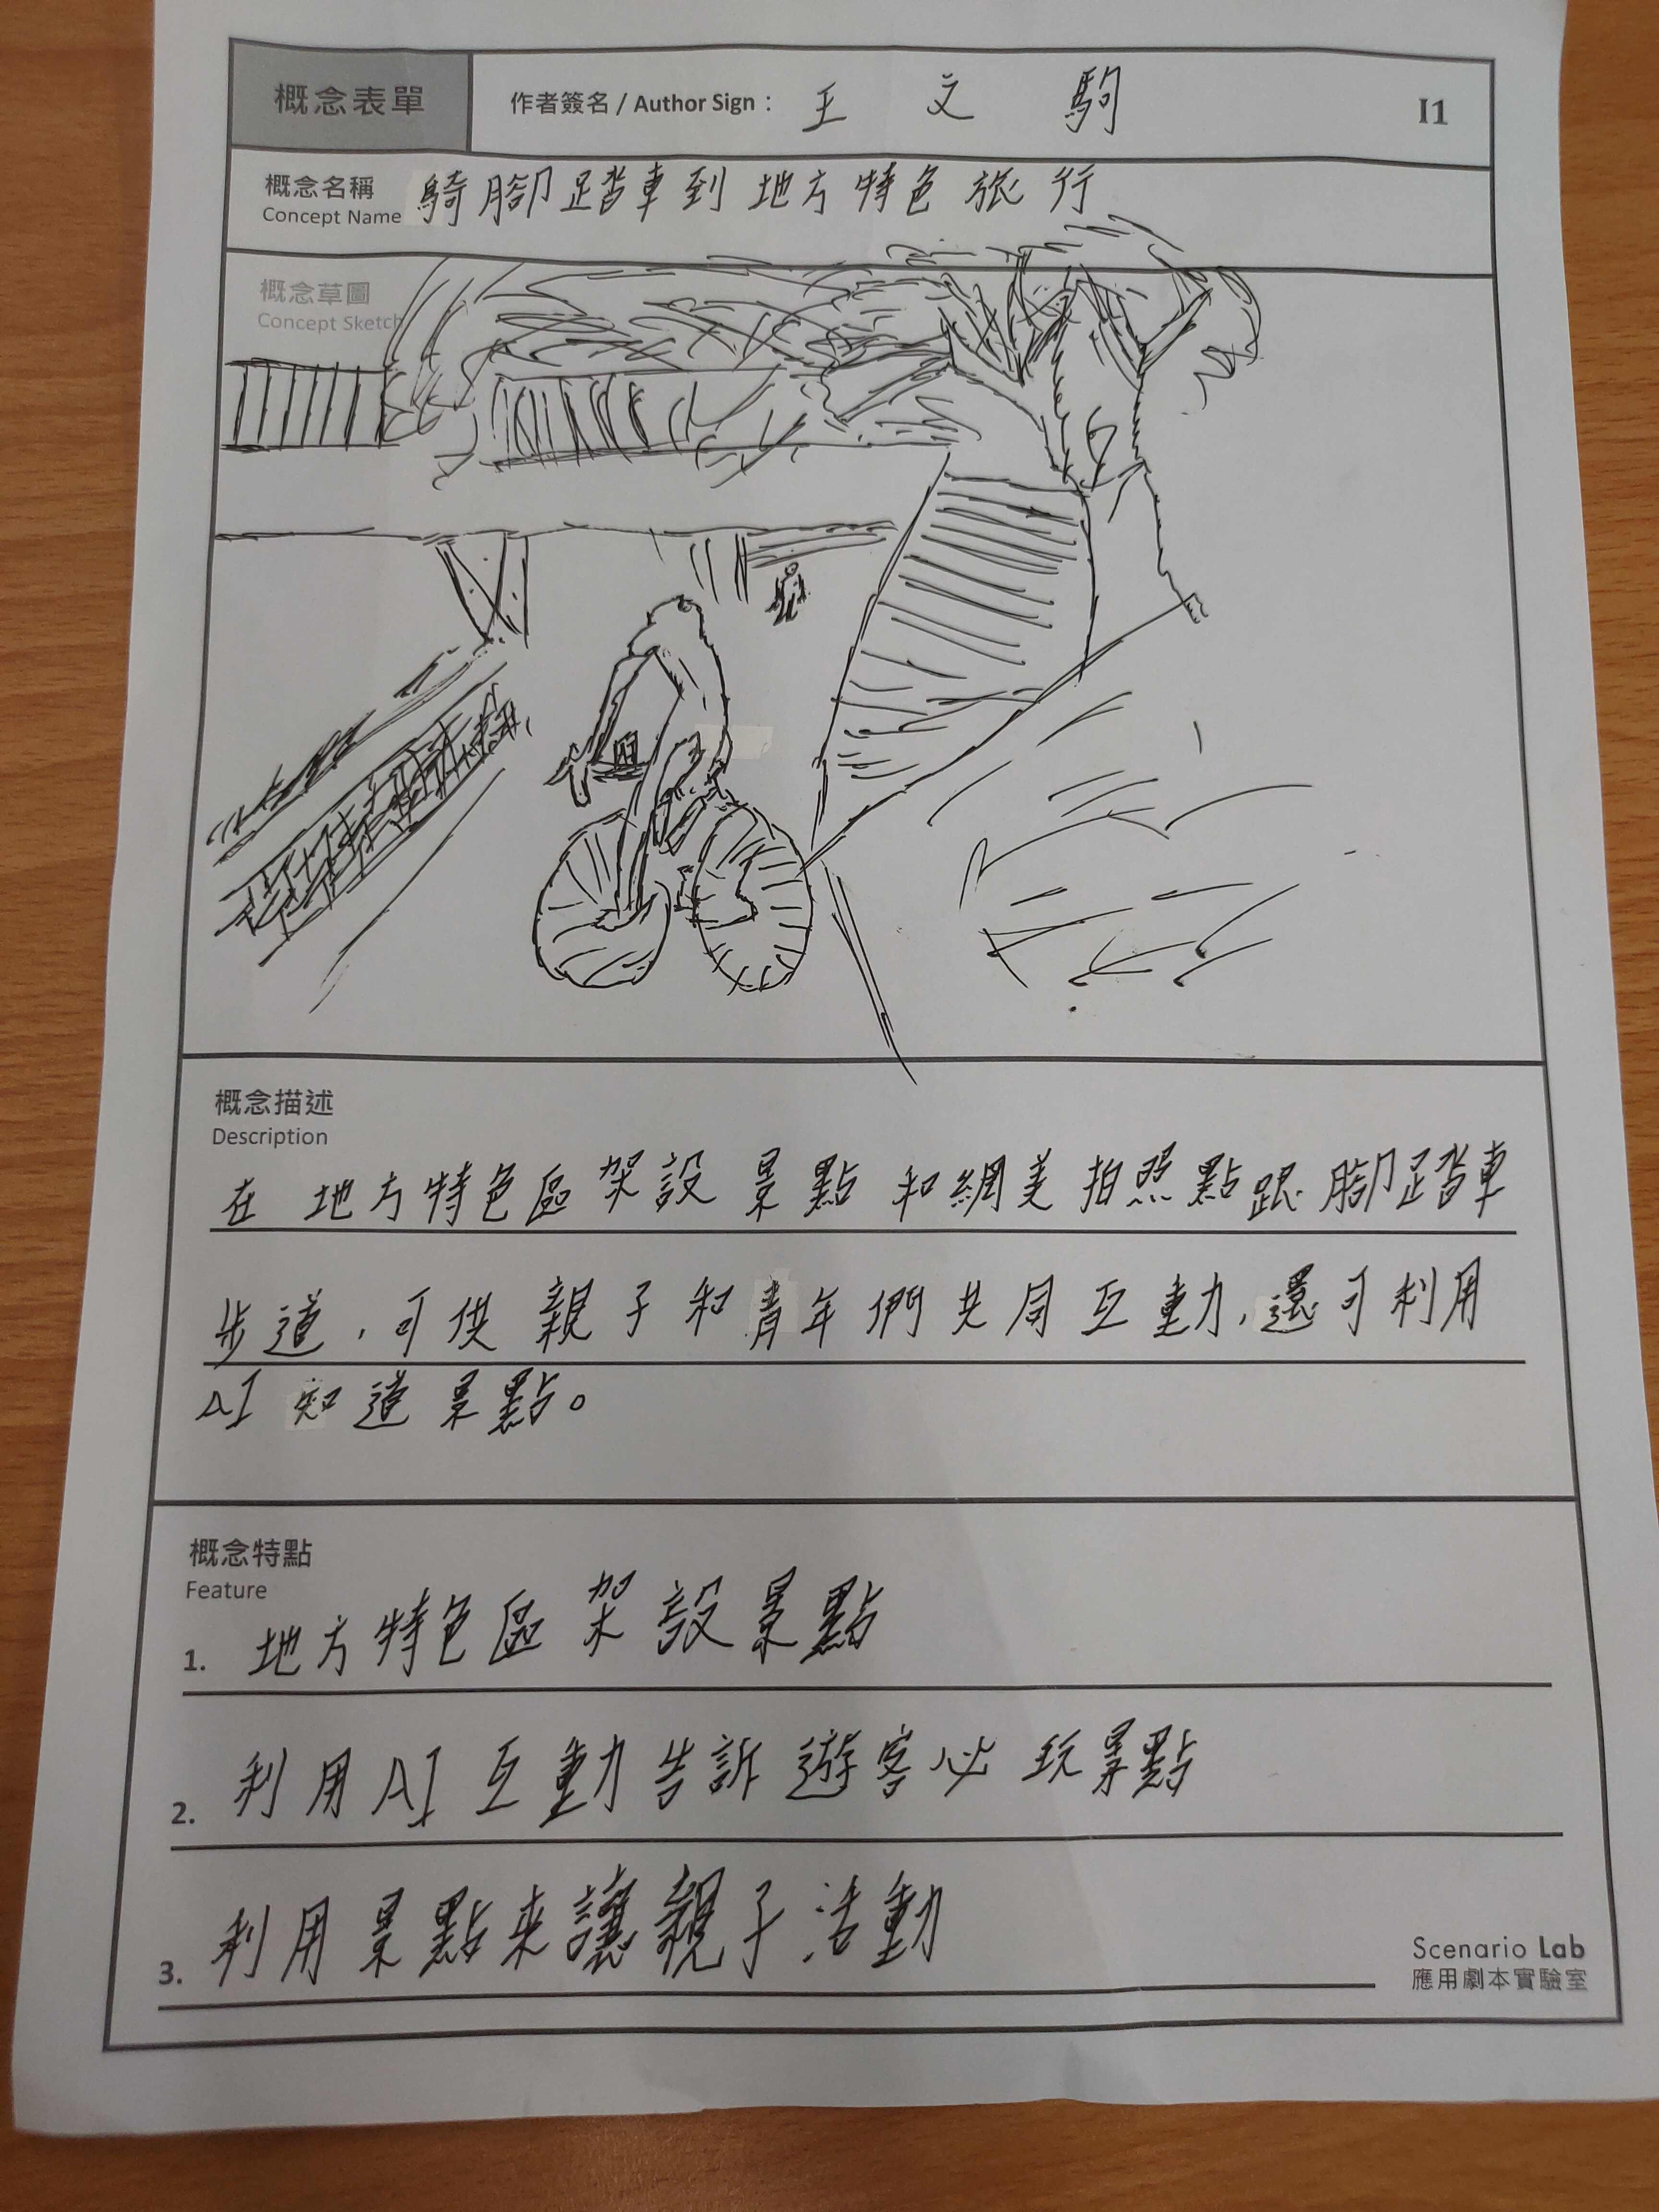 概念表單
作者簽名 / Author Sign： 王文駒
I1
概念名稱 騎腳踏車到地方特色旅行
Concept Name
概念草圖
Concept Sketch
概念描述
Description
在地方特色區架設景點和網美拍照點跟腳踏車
步道，可供親子和青年們共同互動，還可利用
AI知道景點。
概念特點
Feature
1. 地方特色區架設景點
2. 利用AI互動告訴遊客必玩景點
3. 利用景點來讓親子活動
Scenario Lab
應用劇本實驗室